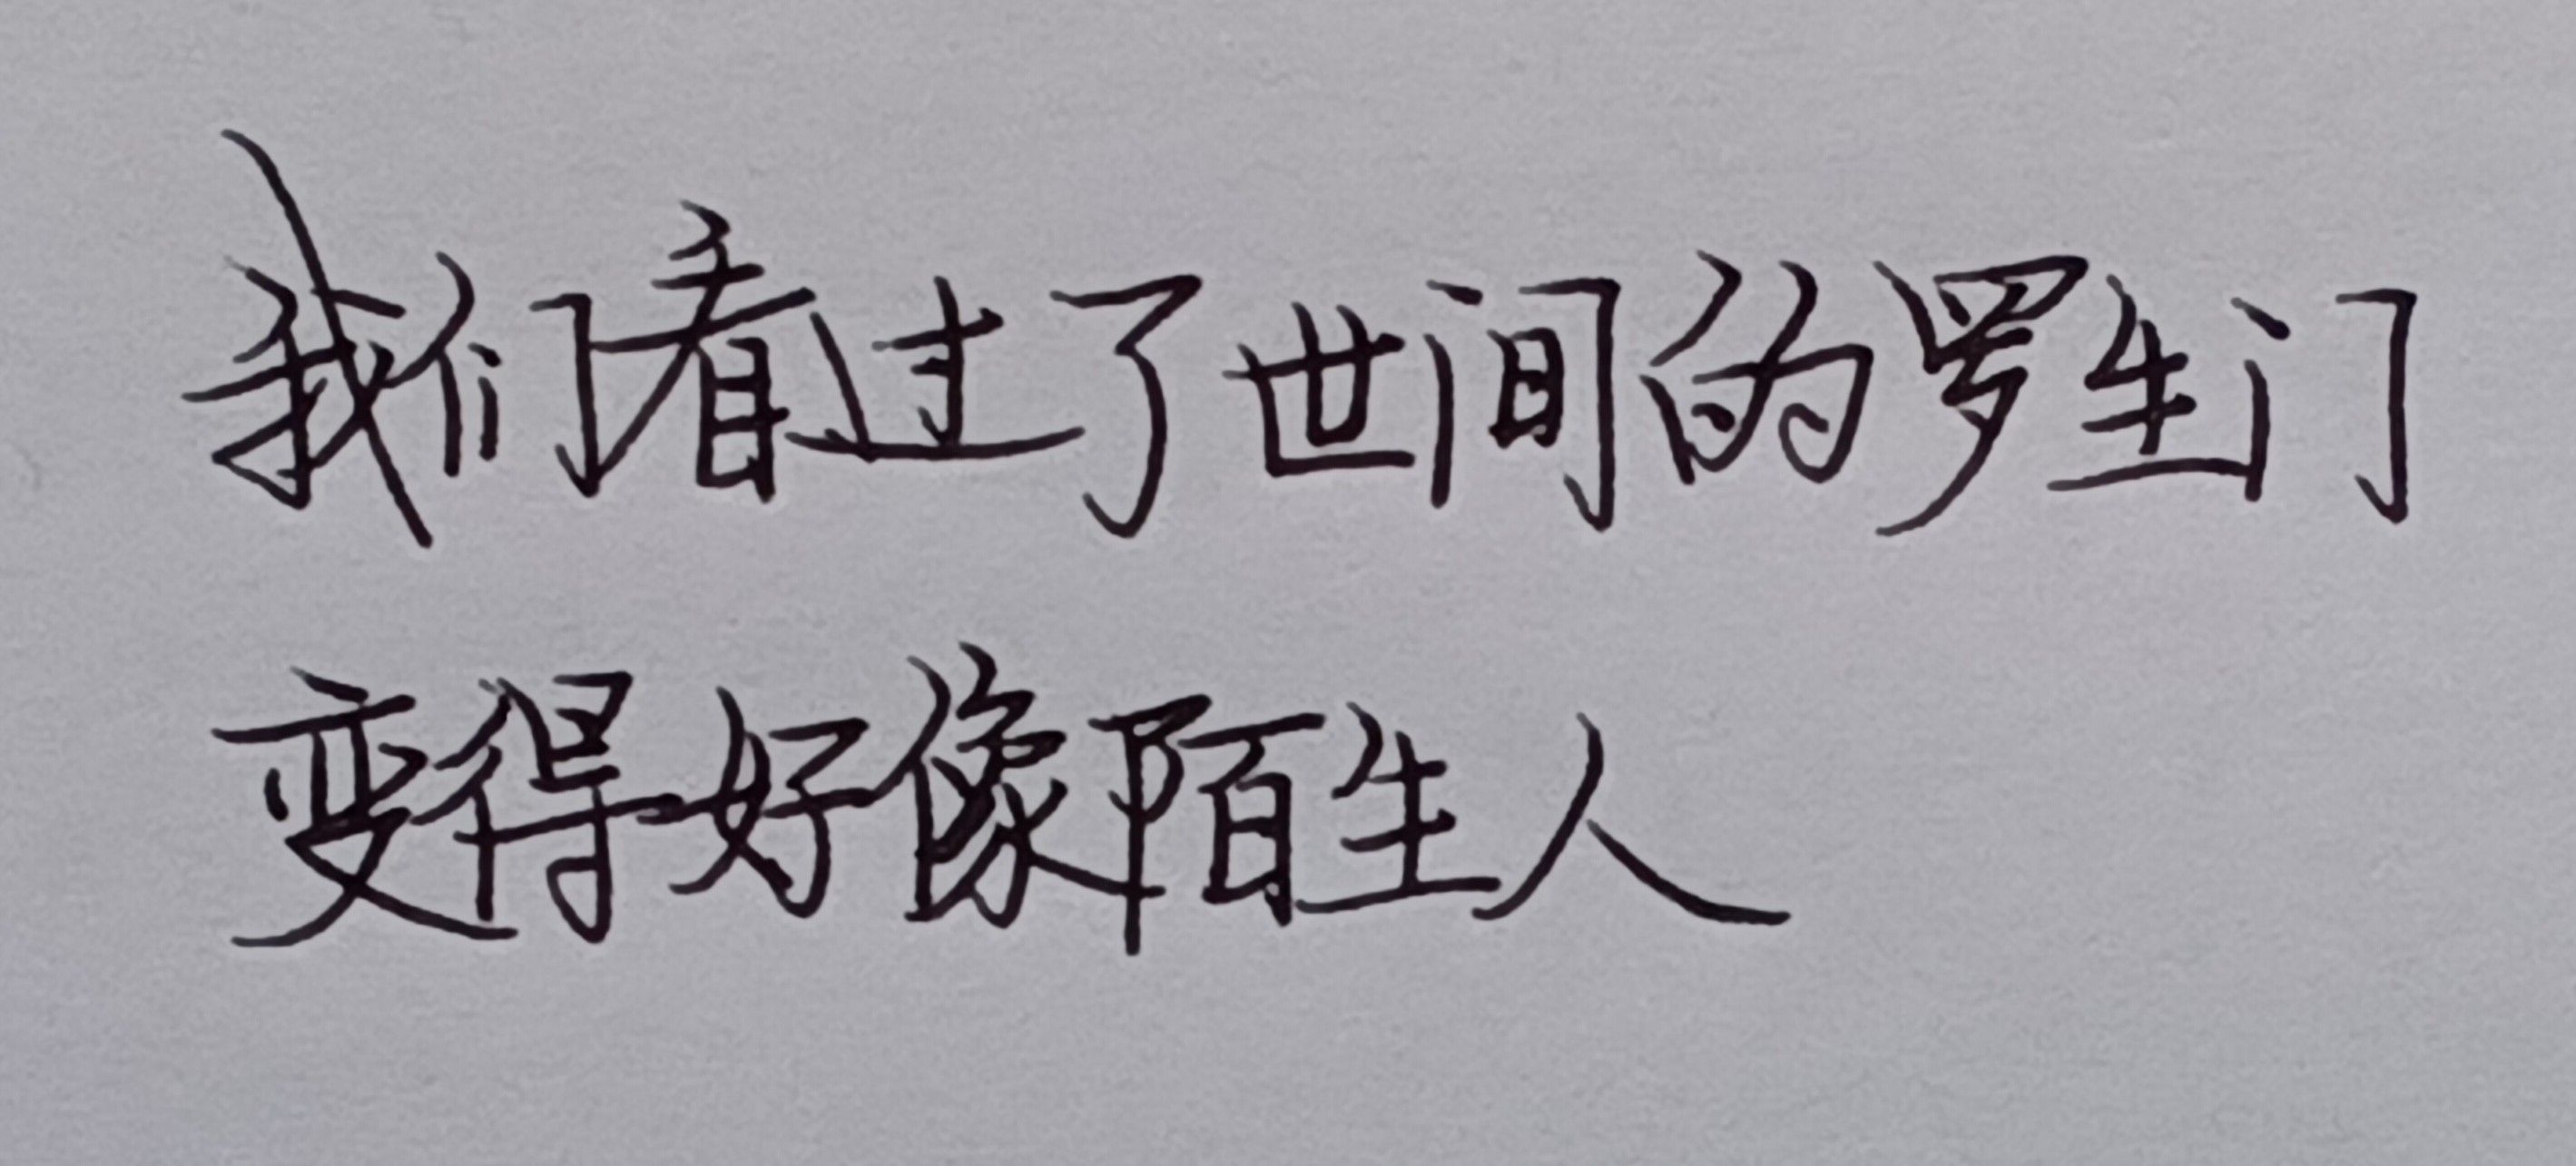 我们看过了世间的罗生门
变得好像陌生人